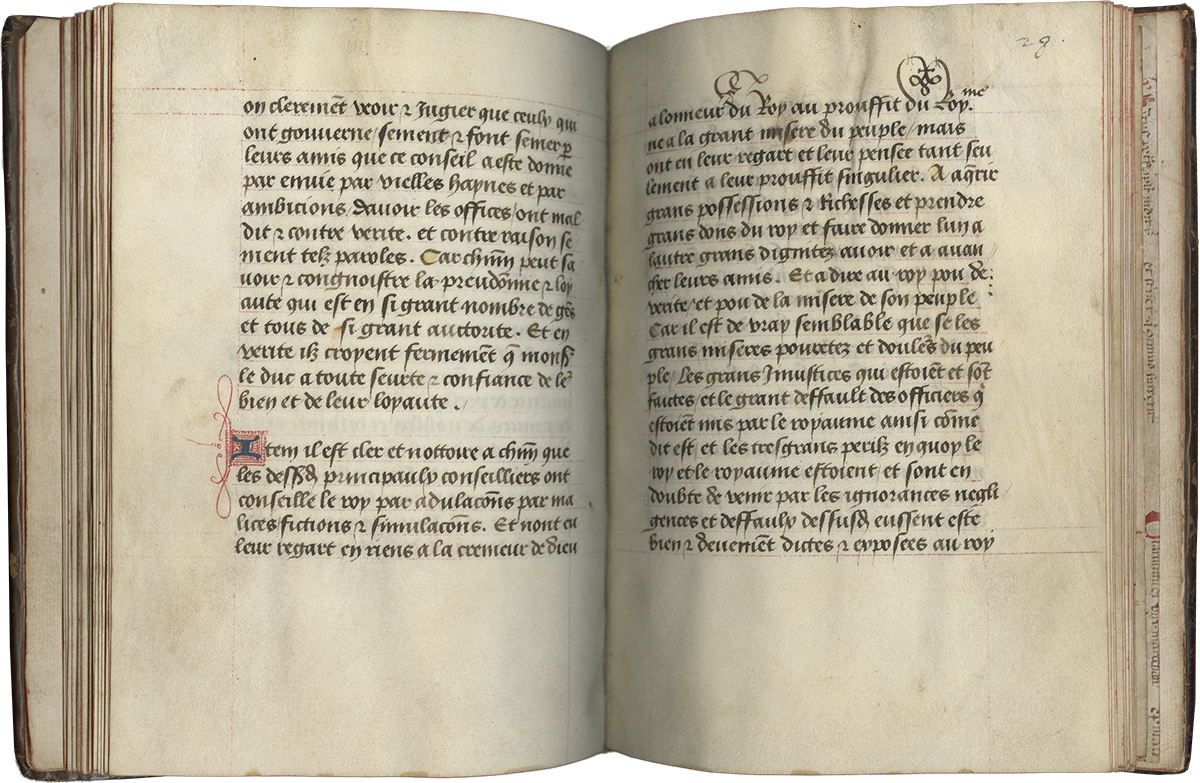 on clerement veoir ⁊ Jugier que ceulx qui
ont gouverne / sement ⁊ font semer p̱
leurs amis que ce conseil a este donne
par envie par vielles haynes et par
ambicions / davoir les offices / ont mal
dit ⁊ contre verite. et contre raison se
ment telz paroles. Car chūn peut sa
voir ⁊ congnoistre la preudōmie ⁊ loy
aute qui est en si grant nombre de gēs
et tous de si grant auctorite. Et en
verite ilz croyent fermemēt q̄ monss̄
le duc a toute seurte ⁊ confiance de le᷑
bien et de leur loyaute.
Item il est cler et nottoire a chūn que
les dessusd̄ principaulx conseilliers ont
conseille le roy par adulacōns par ma
lices fictions ⁊ simulacōns. Et nont eu
leur regart en riens a la cremeur de dieu
29.
a lonneur du Roy au prouffit du Roy.me
ne a la grant misere du peuple / mais
ont eu leur regart et leur pensee tant seu
lement a leur prouffit singulier. A aq̄rir
grans possessions ⁊ Richesses et prendre
grans dons du roy et faire donner lun a
lautre grans dignitez avoir et a avan
cher leurs amis. Et a dire au roy pou de
verite / et pou de la misere de son peuple
Car il est de vray semblable que se les
grans miseres povretez et doule᷑s du peu
ple / Les grans Jnjustices qui estoiēt et sōt
faictes / et le grant deffault des officiers q̄
estoiēt mis par le royaume ainsi cōme
dit est / et les tresgrans perilz en quoy le
roy et le royaume estoient / et sont en
doubte de venir par les ignorances negli
gences et deffaulx dessusd̄ eussent este
bien ⁊ deuemēt dictes ⁊ exposees au roy